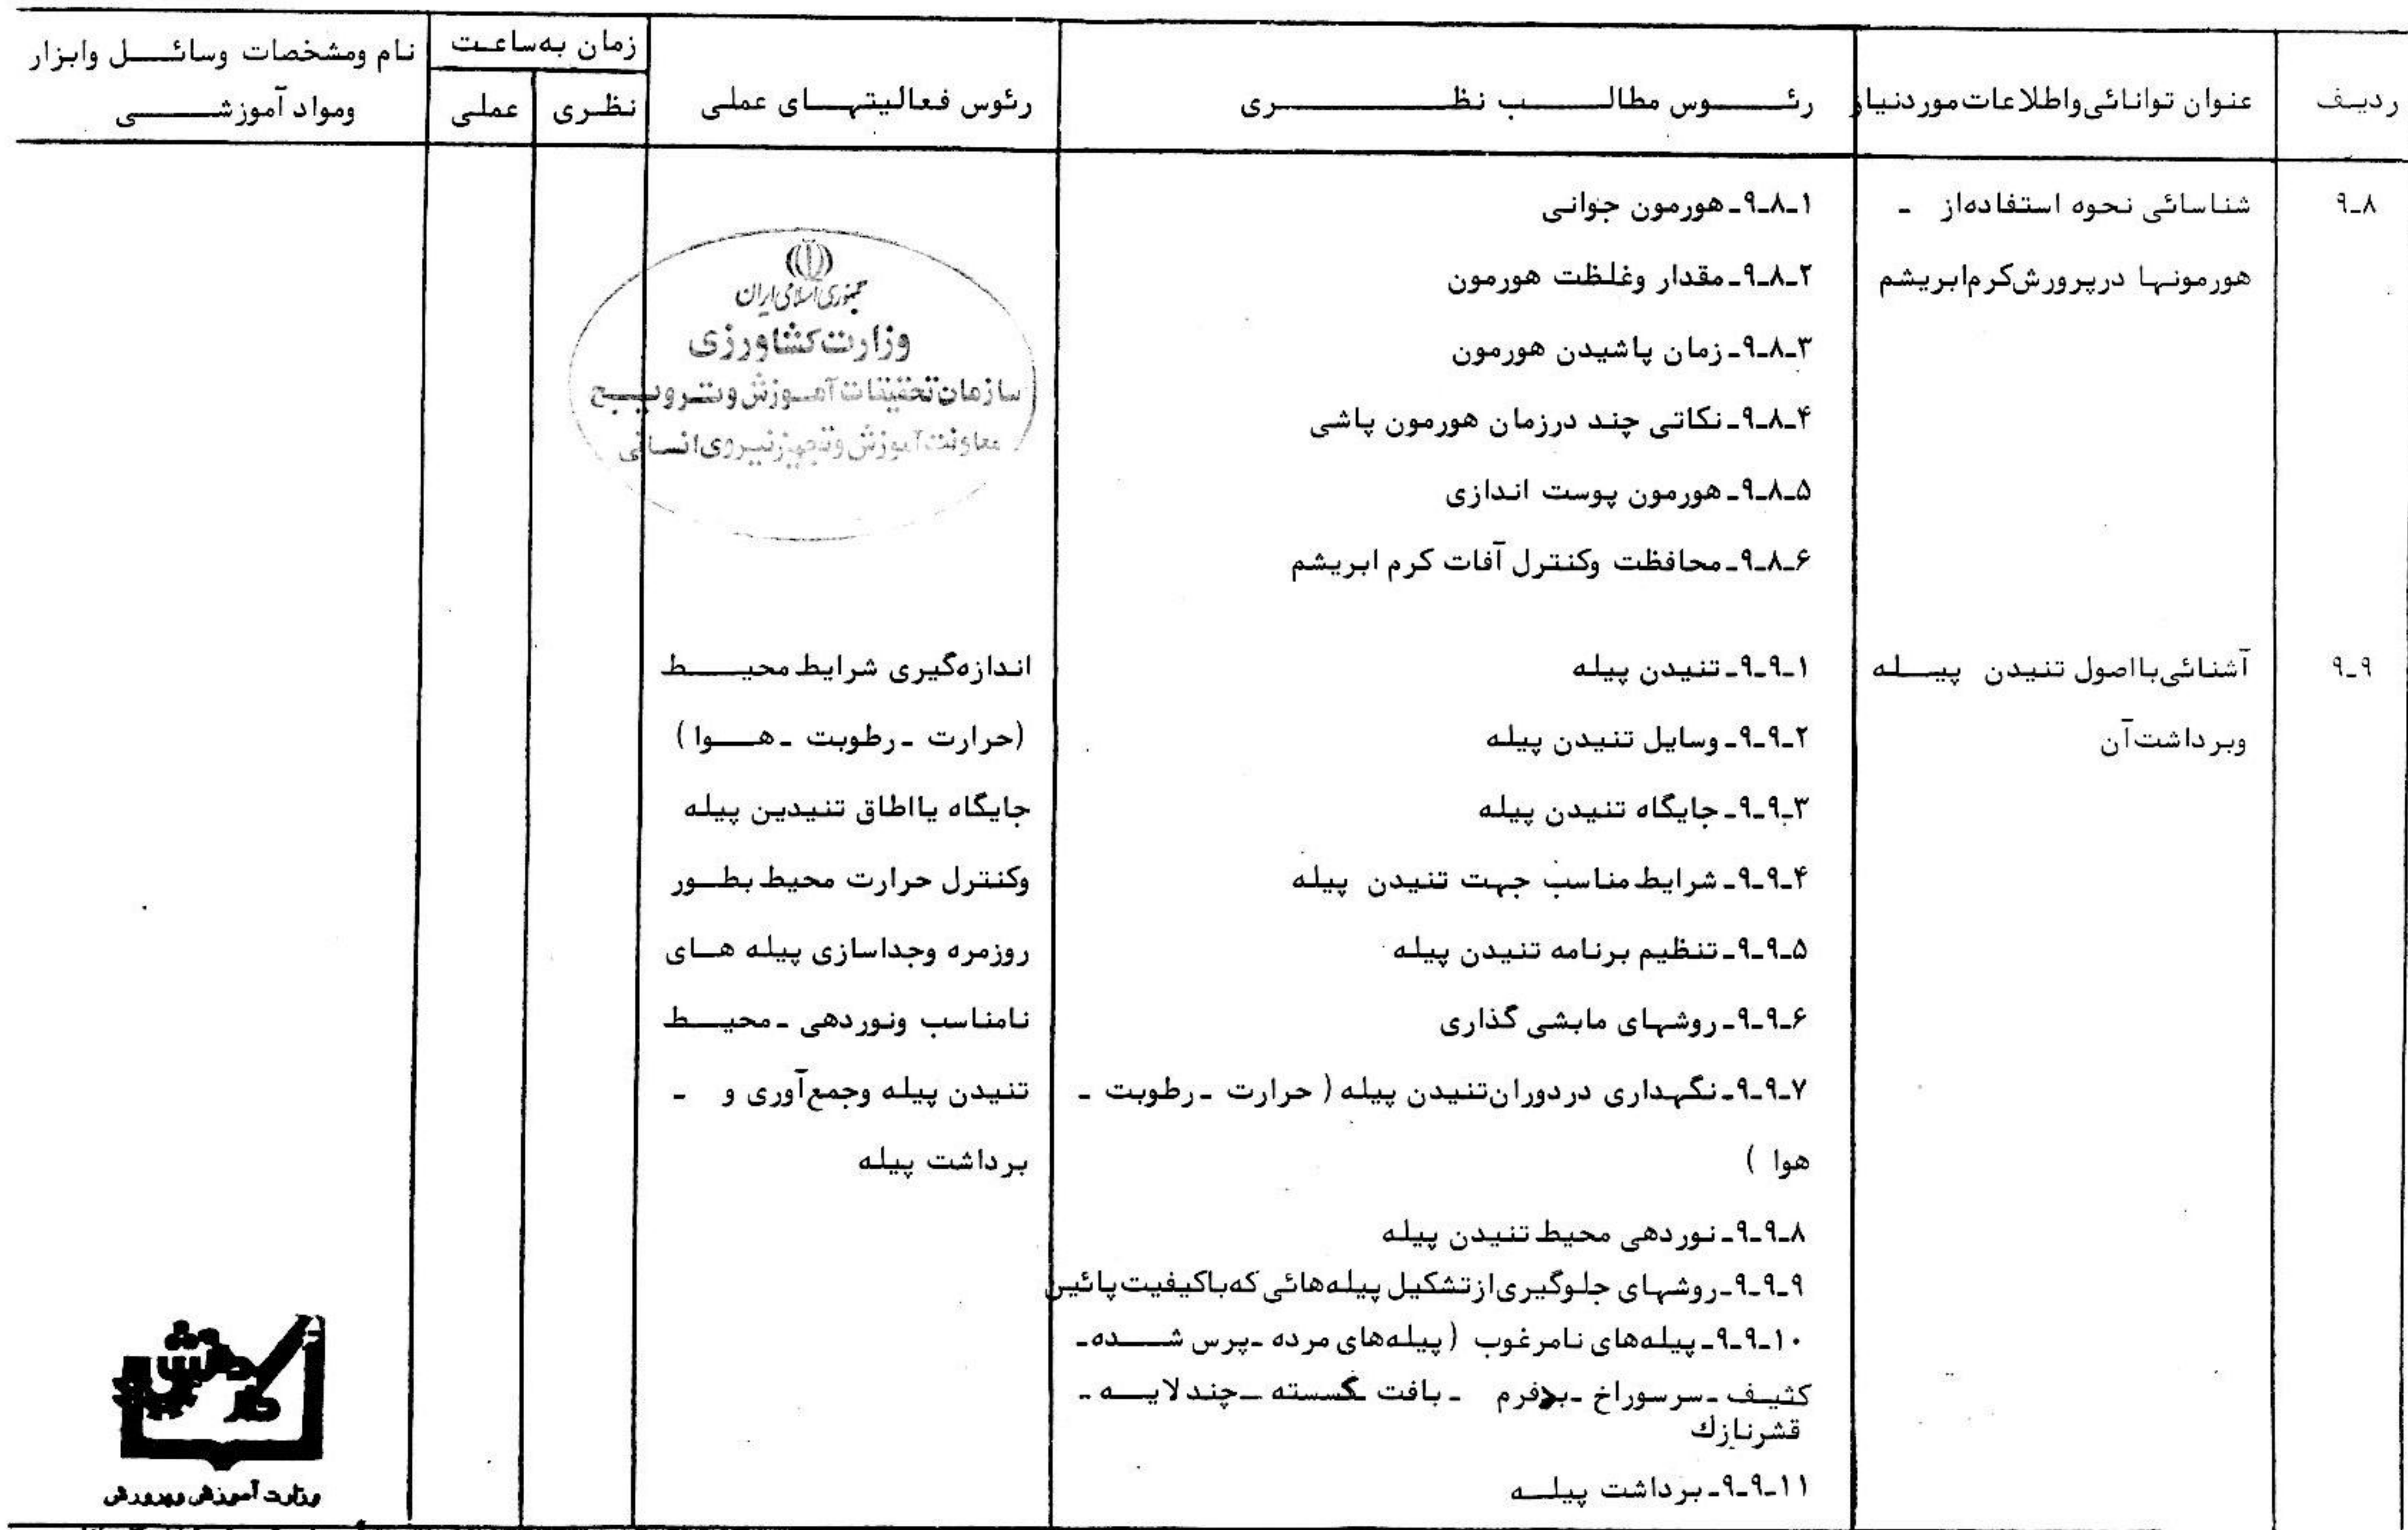 ردیف
عنوان توانائی واطلاعات موردنیاز
رئوس مطالب نظری
رئوس فعالیتهای عملی
زمان به‌ساعت
نظری
عملی
نام ومشخصات وسائل وابزار
ومواد آموزشی
۹ـ۸
شناسائی نحوه استفاده‌از ـ
هورمونها درپرورش‌کرم‌ابریشم
۹ـ۸ـ۱ـ هورمون جوانی
۹ـ۸ـ۲ـ مقدار وغلظت هورمون
۹ـ۸ـ۳ـ زمان پاشیدن هورمون
۹ـ۸ـ۴ـ نکاتی چند درزمان هورمون پاشی
۹ـ۸ـ۵ـ هورمون پوست اندازی
۹ـ۸ـ۶ـ محافظت وکنترل آفات کرم ابریشم
جمهوری اسلامی ایران
وزارت کشاورزی
سازمان تحقیقات آموزش وترویج
معاونت آموزش وتجهیز نیروی انسانی
۹ـ۹
آشنائی بااصول تنیدن پیله
وبرداشت آن
۹ـ۹ـ۱ـ تنیدن پیله
۹ـ۹ـ۲ـ وسایل تنیدن پیله
۹ـ۹ـ۳ـ جایگاه تنیدن پیله
۹ـ۹ـ۴ـ شرایط مناسب جهت تنیدن پیله
۹ـ۹ـ۵ـ تنظیم برنامه تنیدن پیله
۹ـ۹ـ۶ـ روشهای مابشی گذاری
۹ـ۹ـ۷ـ نگهداری دردوران‌تنیدن پیله ( حرارت ـ رطوبت ـ
هوا )
۹ـ۹ـ۸ـ نوردهی محیط تنیدن پیله
۹ـ۹ـ۹ـ روشهای جلوگیری‌ازتشکیل پیله‌هائی که‌باکیفیت پائین
۹ـ۹ـ۱۰ـ پیله‌های نامرغوب ( پیله‌های مرده ـ پرس شده ـ
کثیف ـ سرسوراخ ـ بدفرم ـ بافت گسسته ـ چندلایه ـ
قشرنازك
۹ـ۹ـ۱۱ـ برداشت پیله
اندازه‌گیری شرایط محیط
(حرارت ـ رطوبت ـ هوا )
جایگاه یااطاق تنیدین پیله
وکنترل حرارت محیط بطور
روزمره وجداسازی پیله های
نامناسب ونوردهی ـ محیط
تنیدن پیله وجمع‌آوری و ـ
برداشت پیله
کار دانش
وزارت آموزش وپرورش